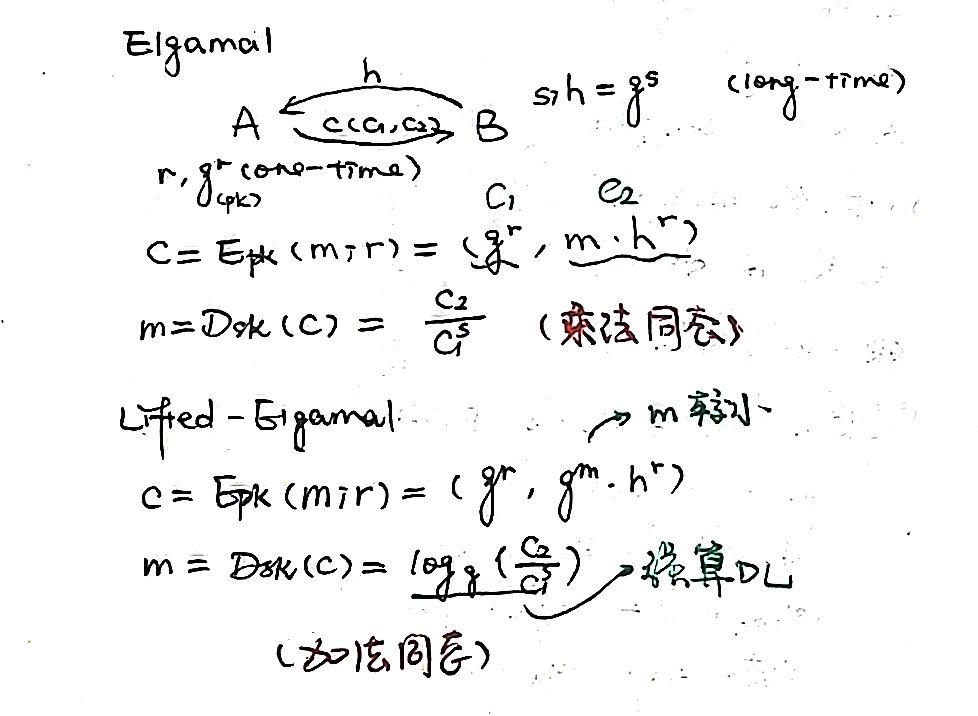 Elgamal
h
A C(C1,C2) B s, h = g^s (long-time)
r, g^r (one-time)
(pk)
C1 C2
C = Epk(m;r) = (g^r, m·h^r)
m = Dsk(C) = C2/C1^s (乘法同态)
Lifted-Elgamal
m 较小
c = Epk(m;r) = (g^r, g^m·h^r)
m = Dsk(C) = log_g(C2/C1^s) 强算DL
(加法同态)